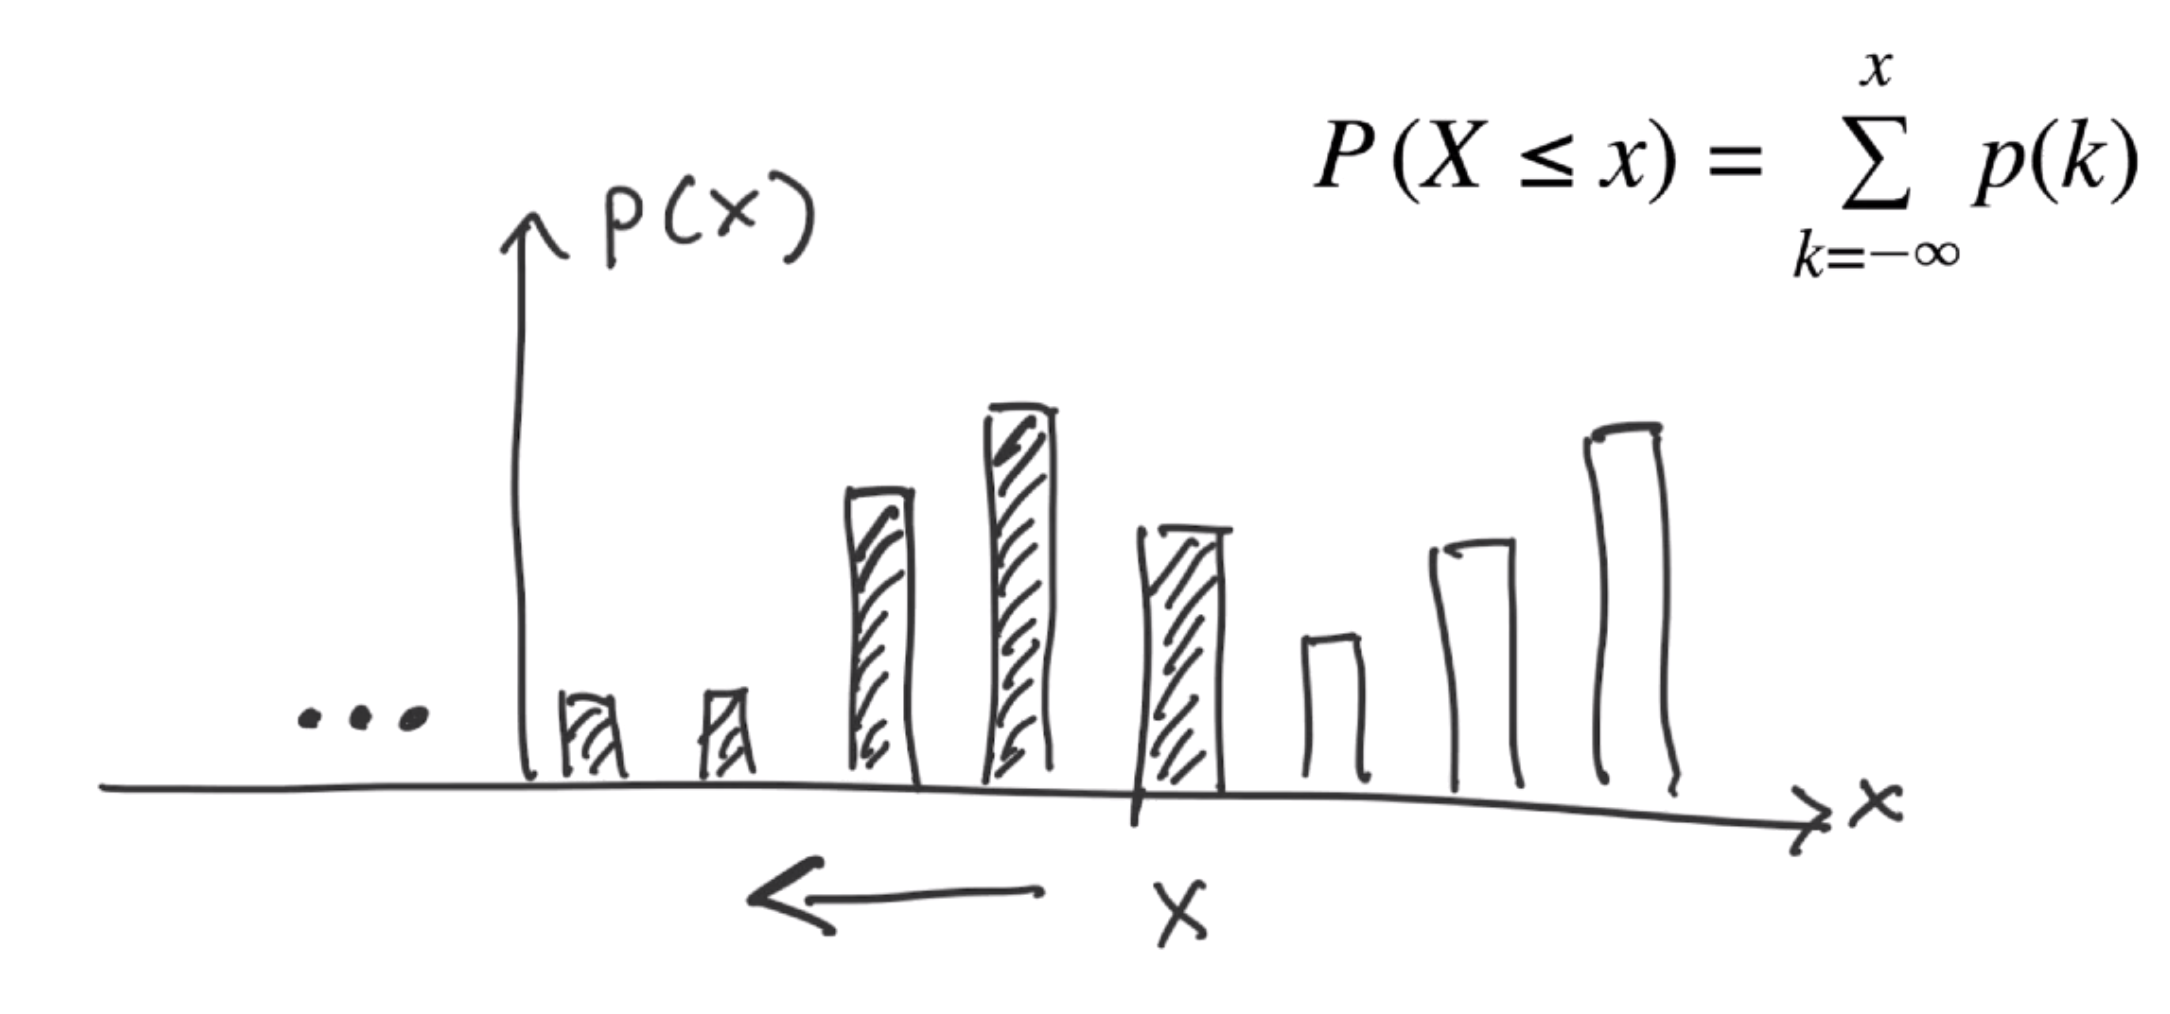 P(X ≤ x) = \sum_{k=-∞}^{x} p(k)
p(x)
...
x
x